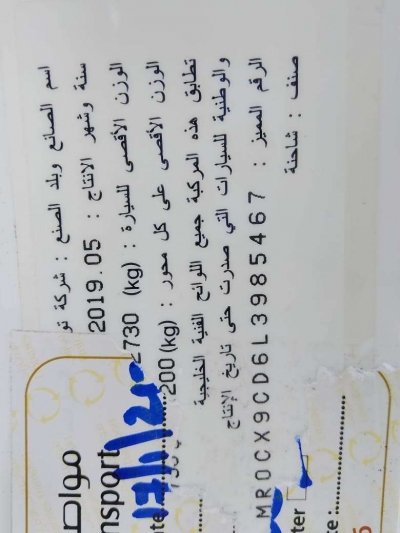 اسم الصانع وبلد الصنع : شركة تو
سنة وشهر الانتاج : 2019.05
الوزن الأقصى للسيارة : (kg) 2730
الوزن الأقصى على كل محور : (kg) 200
تطابق هذه المركبة جميع اللوائح الفنية الخليجية
والوطنية للسيارات التي صدرت حتى تاريخ الإنتاج
الرقم المميز : MR0CX9CD6L3985467
صنف : شاحنة
مواص
nsport